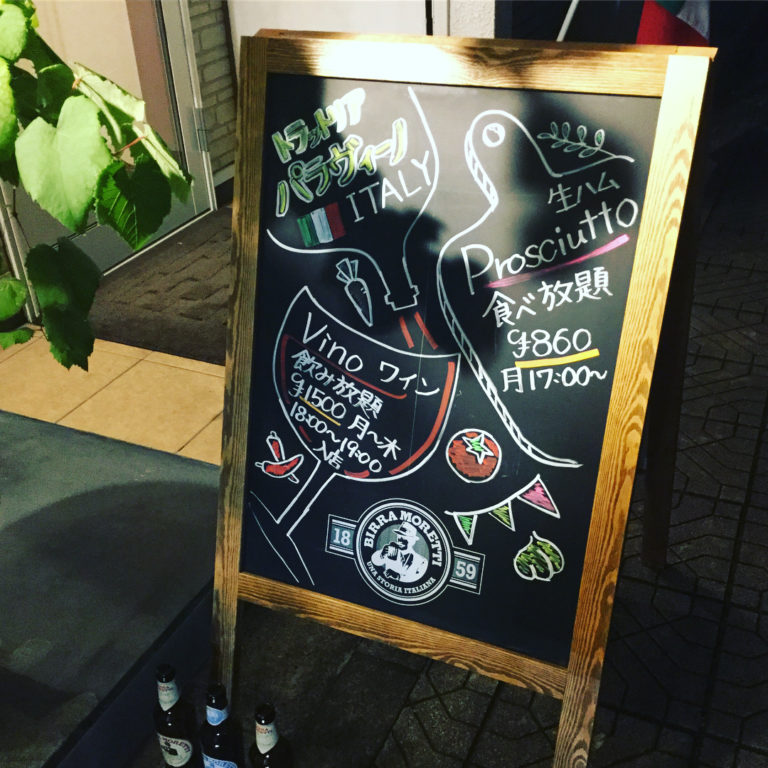 トラットリア
パラ・ヴィーノ
ITALY
生ハム
Prosciutto
食べ放題
¥860
月17:00〜
Vino ワイン
飲み放題
¥1500 月〜木
18:00〜19:00
入店
BIRRA MORETTI
18 59
UNA STORIA ITALIANA